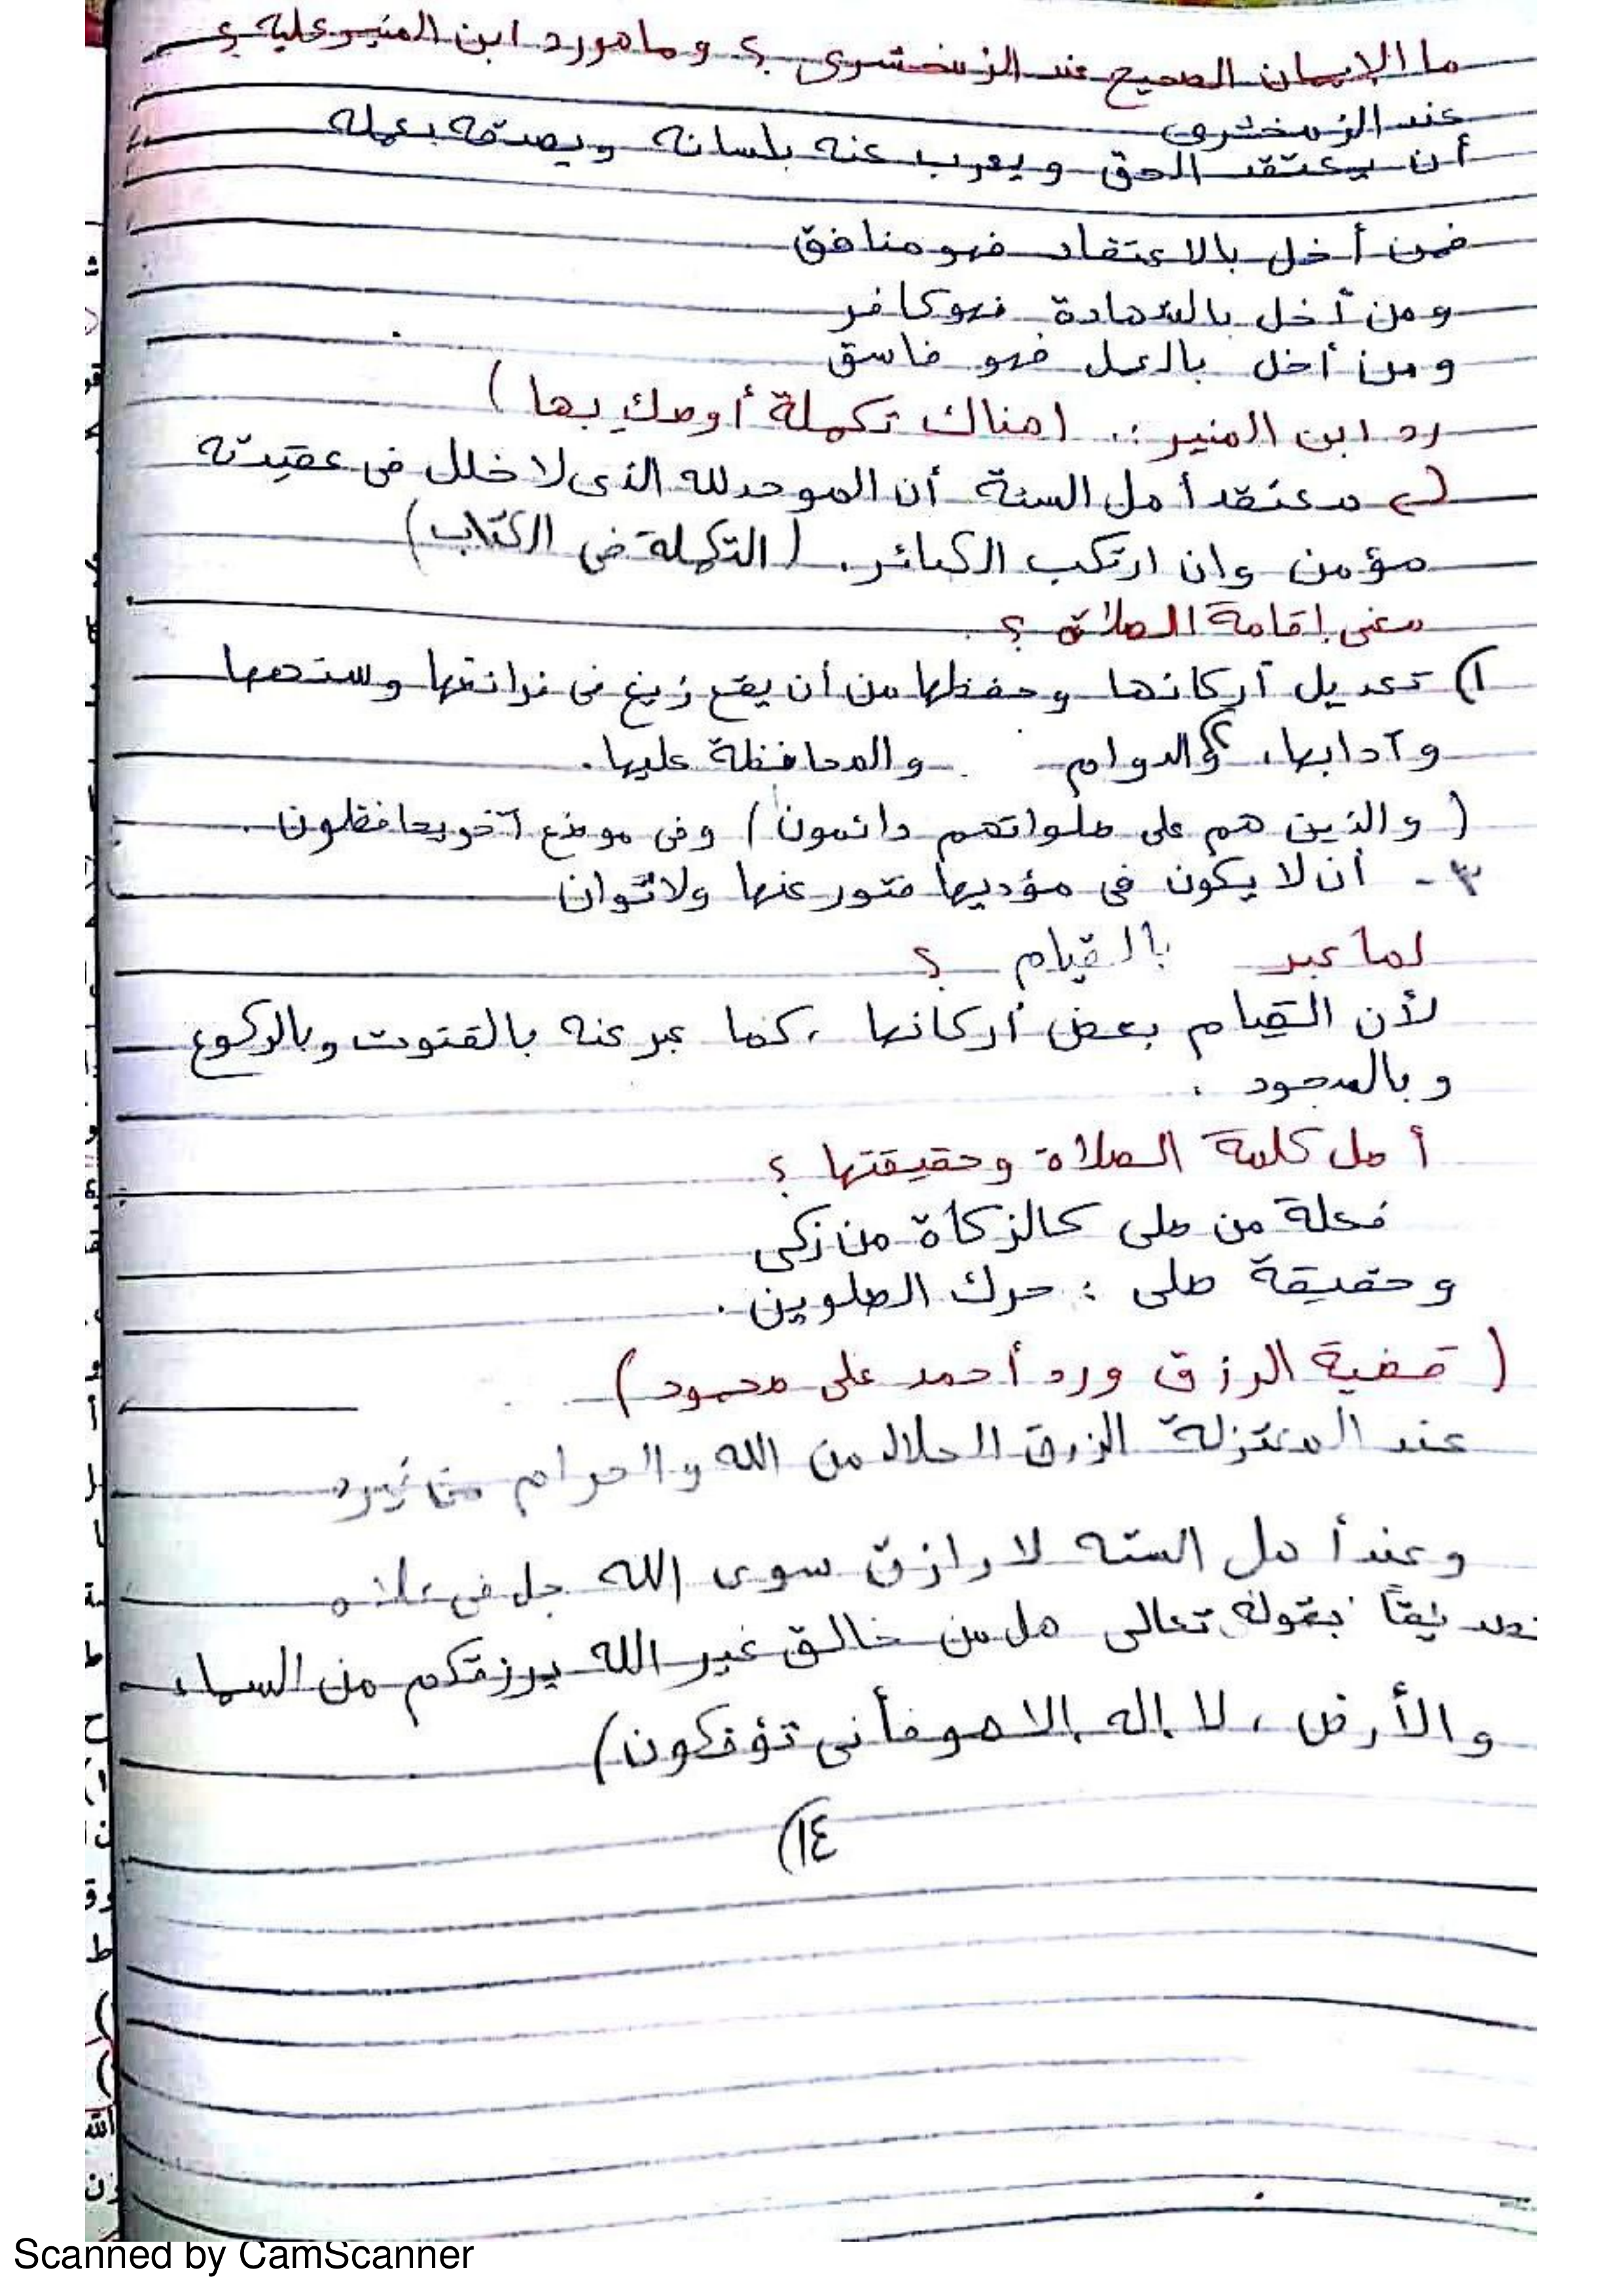 ما الإيمان الصحيح عند الزمخشرى ؟ وما هو رد ابن المنير عليه ؟
عند الزمخشرى
أن يعتقد الحق ويعرب عنه بلسانه ويصدقه بعمله
فمن أخل بالاعتقاد فهو منافق
ومن أخل بالشهادة فهو كافر
ومن أخل بالعمل فهو فاسق
رد ابن المنير :. (هناك تكملة أوصك بها)
معتقد أهل السنة أن الموحد لله الذى لا خلل فى عقيدته
مؤمن وإن ارتكب الكبائر. (التكملة فى الكتاب)
معنى إقامة الصلاة ؟
١) تعديل أركانها وحفظها من أن يقع زيغ فى فرائضها وسننها
وآدابها، والدوام والمحافظة عليها.
(والذين هم على صلواتهم دائمون) وفى موضع آخر يحافظون.
٣- أن لا يكون فى مؤديها فتور عنها ولا توان
لما عبر بالقيام ؟
لأن القيام بعض أركانها ، كما عبر عنه بالقنوت وبالركوع
وبالسجود .
أصل كلمة الصلاة وحقيقتها ؟
فعلة من صلى كالزكاة من زكى
وحقيقة صلى : حرك الصلوين .
(قضية الرزق ورد أحمد على محمود)
عند المعتزلة الرزق الحلال من الله والحرام من
وعند أهل السنه لا رازق سوى الله جل فى علاه
تصديقًا بقوله تعالى هل من خالق غير الله يرزقكم من السماء
والأرض ، لا إله إلا هو فأنى تؤفكون)
١٤)
Scanned by CamScanner